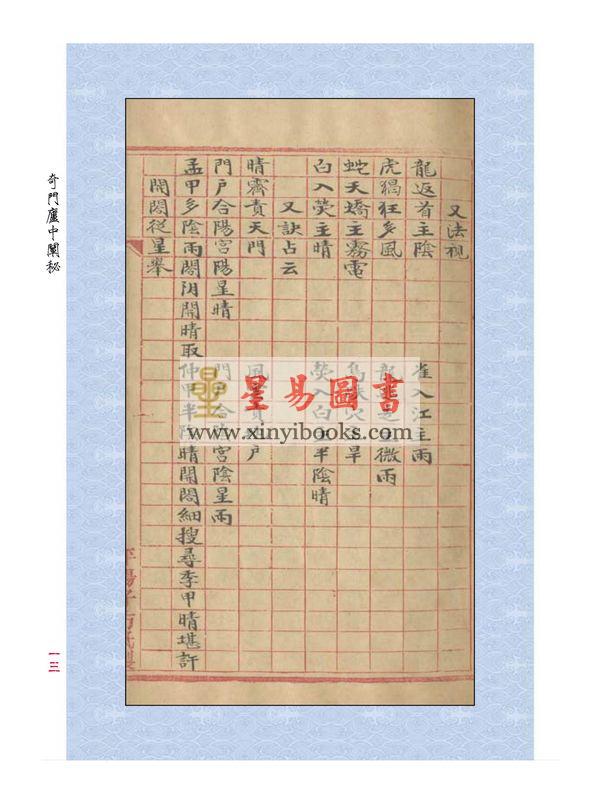 又法視
龍返首主陰 雀入江主雨
虎猖狂多風 龍微雨
蛇天矯主霧電 旱
白入熒主晴 熒入白主半陰晴
又訣占云
晴霽責天門 風責戶
門戶合陽宮陽星晴 門合宮陰星雨
孟甲多陰雨閤阴開晴取仲甲半陰晴開閤細搜尋季甲晴堪許
開閤從星舉
奇門廬中闡秘
一三
星易圖書
www.xinyibooks.com